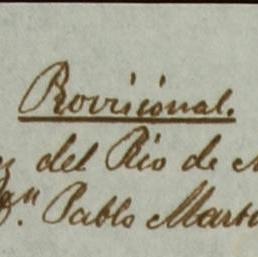 Provicional.
ez del Rio de
Dn. Pablo Mart